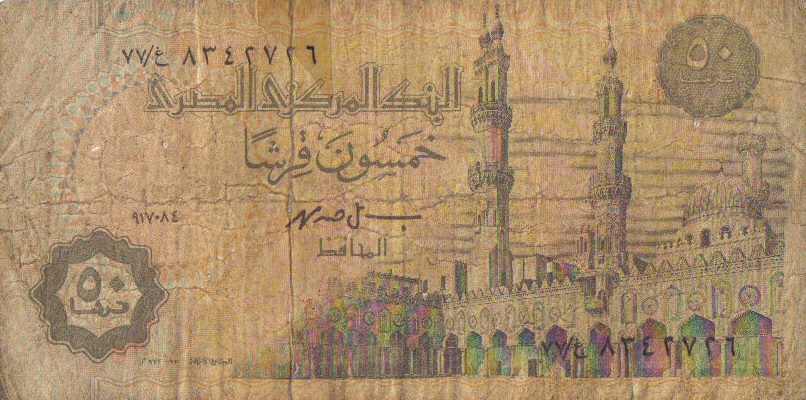 ٧٧/غ ٨٣٤٢٧٢٦
٥٠
البنك المركزى المصرى
خمسون قرشًا
٩١٧٠٨٤
المحافظ
٥٠
قرشا
٧٧/غ ٨٣٤٢٧٢٦